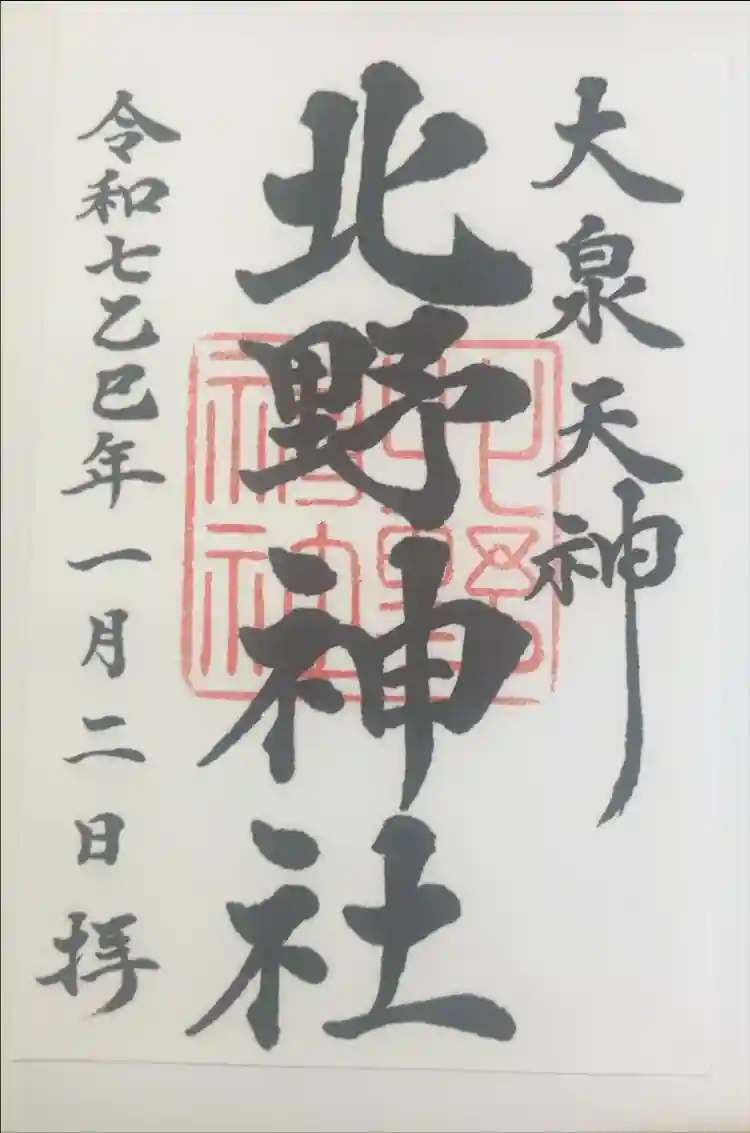 大泉天神
北野神社
北野神社
令和七乙巳年一月二日拝